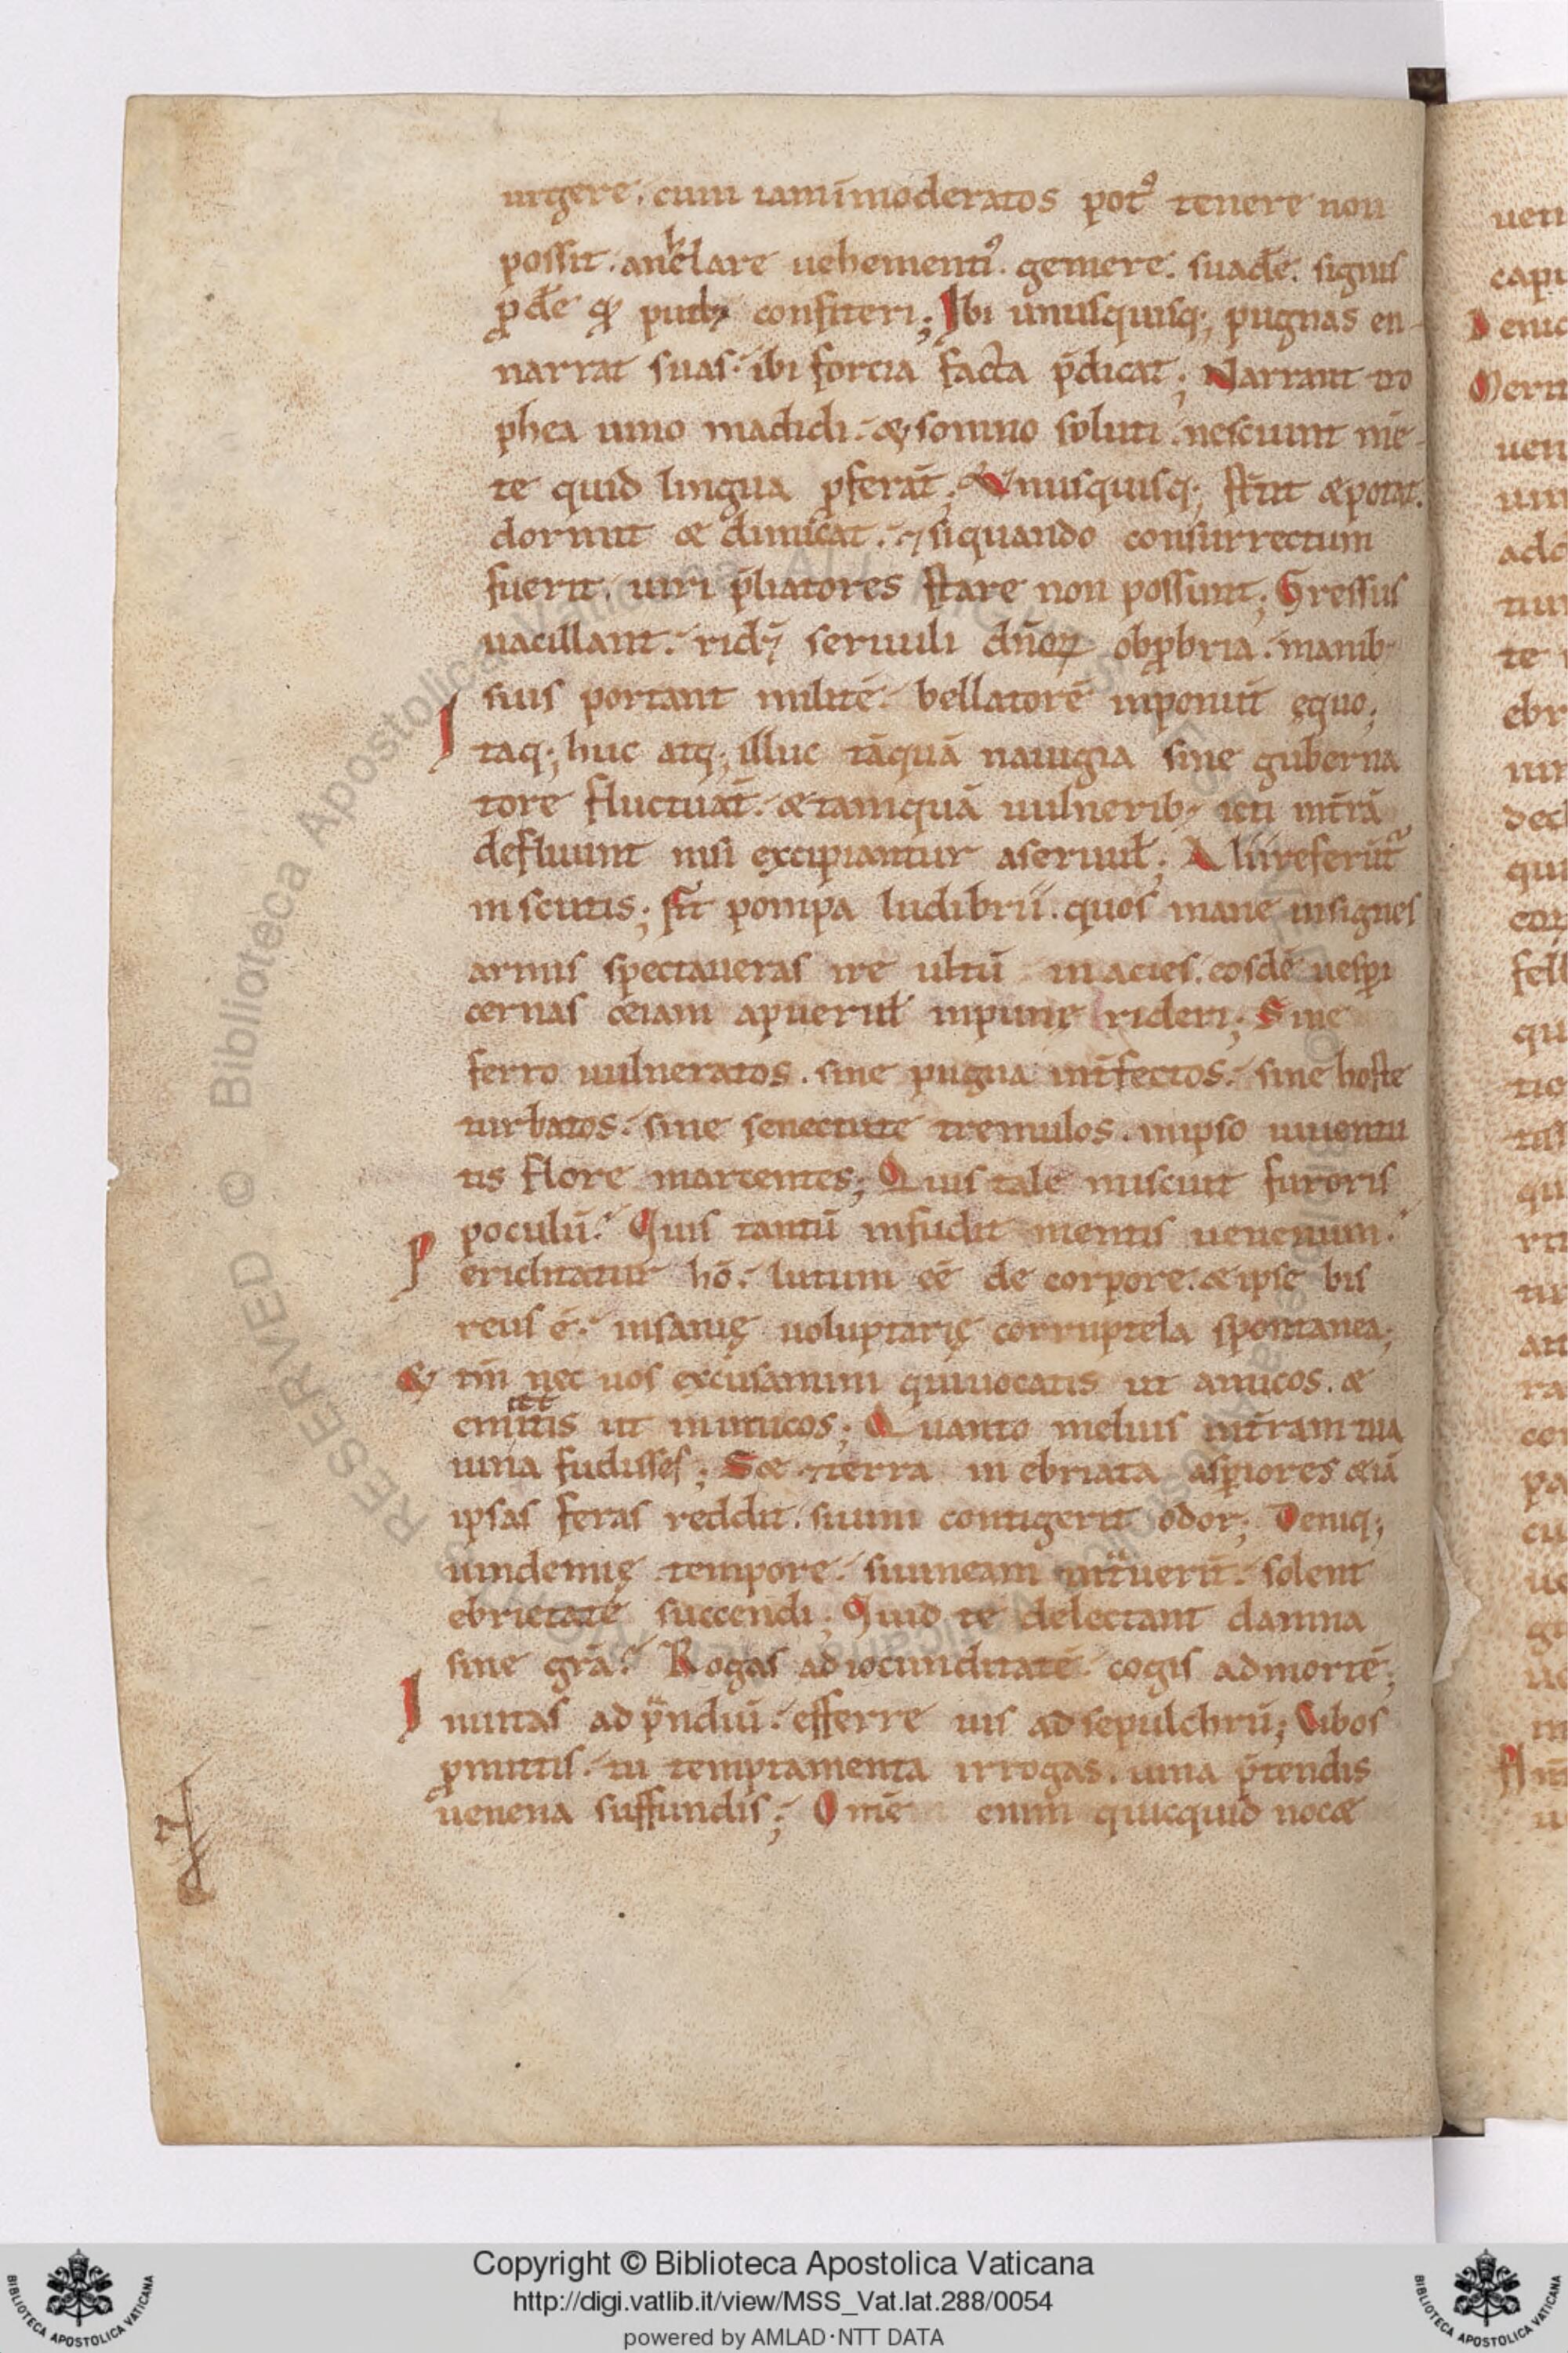 urgere. cum iam īmoderatos pot᷒ tenere non
possit. anhelare uehementi᷒. gemere. suadē. signis
ꝓdē qđ pudꝫ confiteri; Ibi unusquisq; pugnas en-
narrat suas. ibi forcia facta p̄dicat; Narrant tro
phea uino madidi. & somno soluti. nesciunt mē-
te quid lingua ꝓferāt; Vnusquisq; stertit & potat.
dormit & dimicat. ⁊ siquando consurrectum
fuerit. uiri p̄liatores stare non possunt; Gressus
uacillant. rid⁊ seruuli dñoꝝ obꝓbria. manib;
suis portant militē. bellatorē inponūt equo;
Itaq; huc atq; illuc tāquā nauigia sine guberna
tore fluctuāt. & tamquā uulnerib; icti int̄rā
defluunt nisi excipiantur a seruul̄; Alii referūt᷑
in scutis; fit pompa ludibrii. quos mane insignes
armis spectaueras ire ultū in acies. eosdē uesp̱i
cernas &iam a pueril̄ inpune rideri; Sine
ferro uulneratos. sine pugna int̄fectos. sine hoste
turbatos. sine senectute tremulos. in ipso iuuentu
tis flore marcentes; Quis tale miscuit furoris
poculū? Quis tantū infudit mentis uenenum?
Periclitatur hō. lutum eē de corpore. & ipse bis
reus ē. insanię uoluptarię corruptela spontanea;
& tm̄ nec uos excusamini qui uocatis ut amicos. &
emittitis ut inimicos; Quanto melius int̄ram tua
uina fudisses; S& ⁊terra inebriata asp̱iores &iā
ipsas feras reddit. si uini contigerit odor; Deniq;
uindemię tempore. si uineam int̄uerīt. solent
ebrietate succendi; Quid te delectant damna
sine grā? Rogas ad iocunditatē. cogis ad mortē;
Inuitas ad prandiū. efferre uis ad sepulchrū; Cibos
ꝓmittis. tu temptamenta irrogas. uina p̄tendis
uenena suffundis; Omē enim quicquid noc&
Copyright © Biblioteca Apostolica Vaticana
http://digi.vatlib.it/view/MSS_Vat.lat.288/0054
powered by AMLAD·NTT DATA